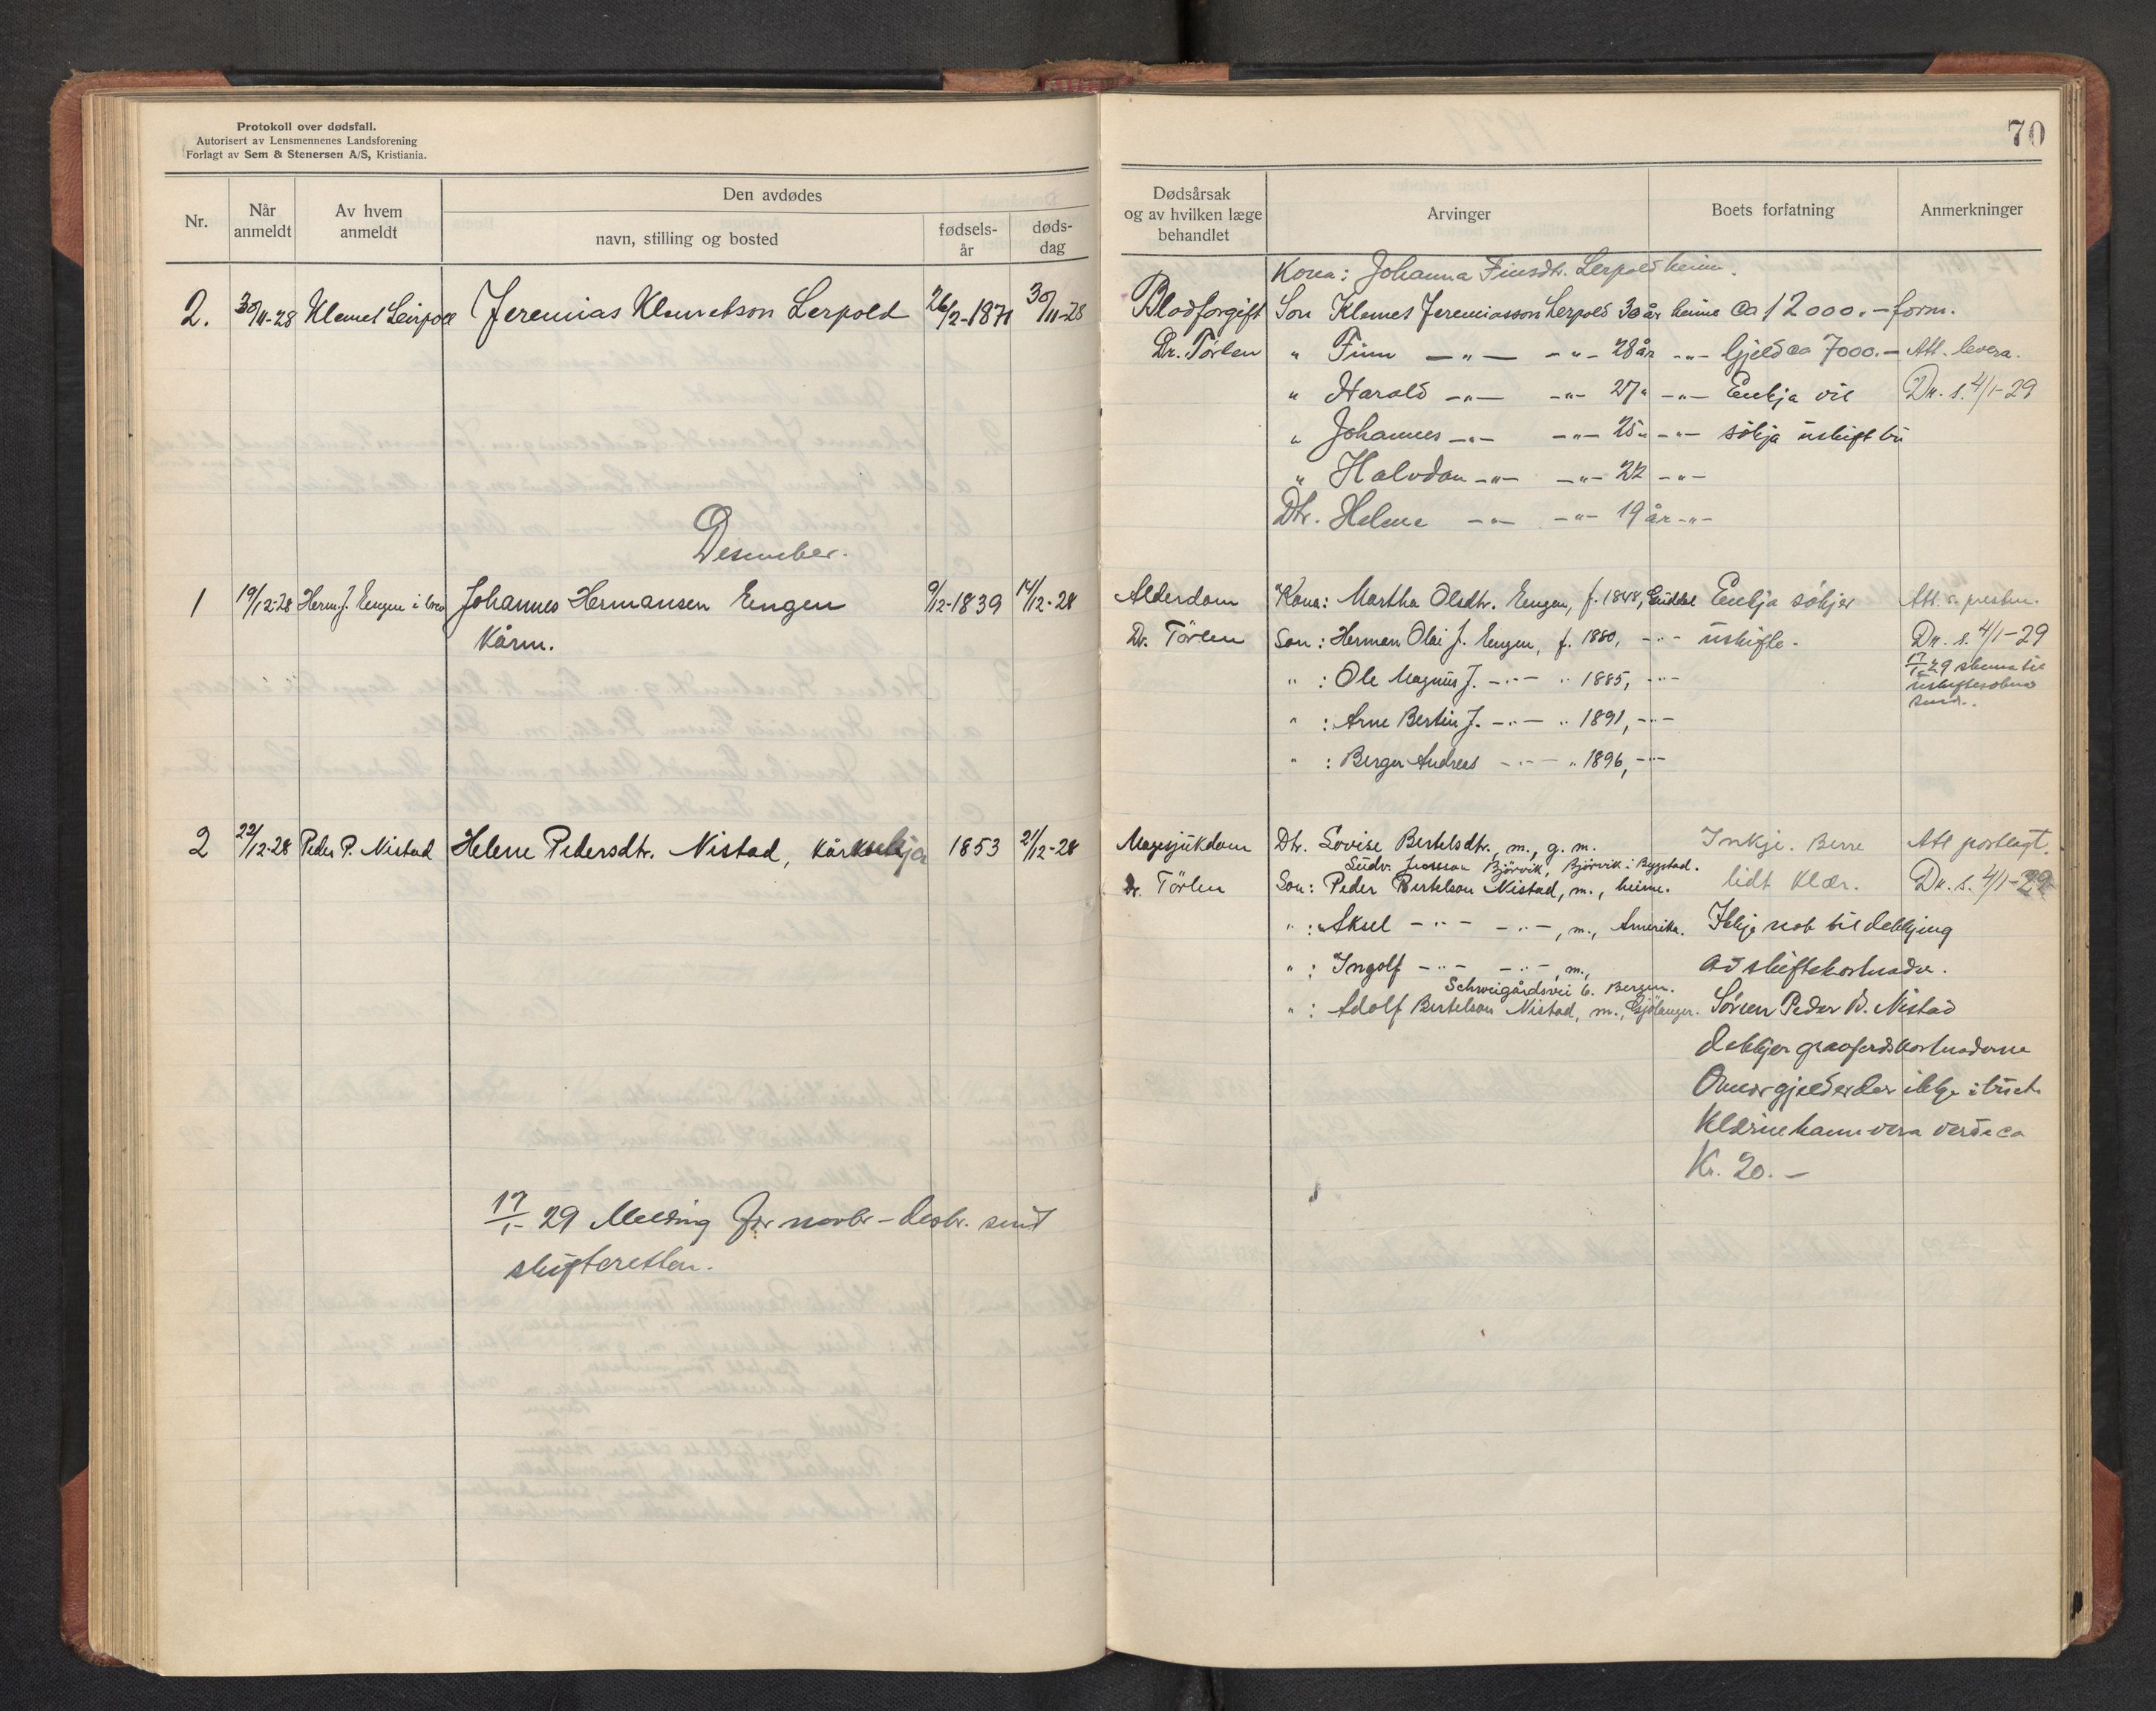 Protokoll over dødsfall.
Autorisert av Lensmennenes Landsforening
Forlagt av Sem & Stenersen A/S, Kristiania.
Nr.
Når anmeldt
Av hvem anmeldt
Den avdødes
navn, stilling og bosted
fødsels-år
døds-dag
2. 30/11-28 Klemet Leirpoll Jeremias Klemetson Lerpold 26/2-1871 30/11-28
Desember.
1 19/12-28 Herm. J. Engen i brev Johannes Hermansen Engen 9/12-1839 14/12-28
Kårm.
2 22/12-28 Peder P. Nistad Helene Pedersdtr. Nistad, kårenkja 1853 21/12-28
17/1-29 Melding for novbr-desbr. send
skifteretten.
70
Dødsårsak og av hvilken læge behandlet
Arvinger
Boets forfatning
Anmerkninger
Kona: Johanna Finsdtr. Lerpold heime.
Blodforgift Son Klemes Jeremiasson Lerpold 30 år heime Ca 12000.- form.
Dr. Tørlen " Finn -"- -"- 28 år -"- Gjeld ca 7000.- Att. levera.
" Harald -"- -"- 27 " -"- Enkja vil Dn. s. 4/1-29
" Johannes -"- -"- 25 " -"- søkja uskift bu
" Halvdan -"- -"- 22 -"-
Dtr. Helene -"- -"- 19 år -"-
Alderdom Kona: Martha Olsdtr. Engen, f. 1848, Guddal Enkja søkjer Att. s. presten.
Dr. Tørlen Son: Herman Olai J. Engen, f. 1880, -"- uskifte. Dn. s. 4/1-29
" : Ole Magnus J. -"- " 1885, -"- 17/1 29 skema til
uskiftesøkna
send.
" : Arne Bertin J. -"- " 1891, -"-
" : Berger Andreas -"- " 1896, -"-
Magesjukdom Dtr. Lovise Bertelsdtr., m., g. m. Inkje. Berre Att postlagt.
Ludv. Bjørvik, Bjørvik i Bygstad.
Dr. Tørlen Son: Peder Bertelson Nistad, m., heime. lidt klær. Dn. s. 4/1-29
" : Aksel -"- -"-, m., Amerika. Ikkje nok til dekkjing
" : Ingolf -"- -"-, m., av skiftekostnader.
Schweigårdsvei 6. Bergen.
" : Adolf Bertelson Nistad, m., Gjølanger. Sonen Peder B. Nistad
dekkjer gravferdskostnadene
Onnor gjeld er der ikkje i buet
Klærne kann vera verde ca
Kr. 20.-